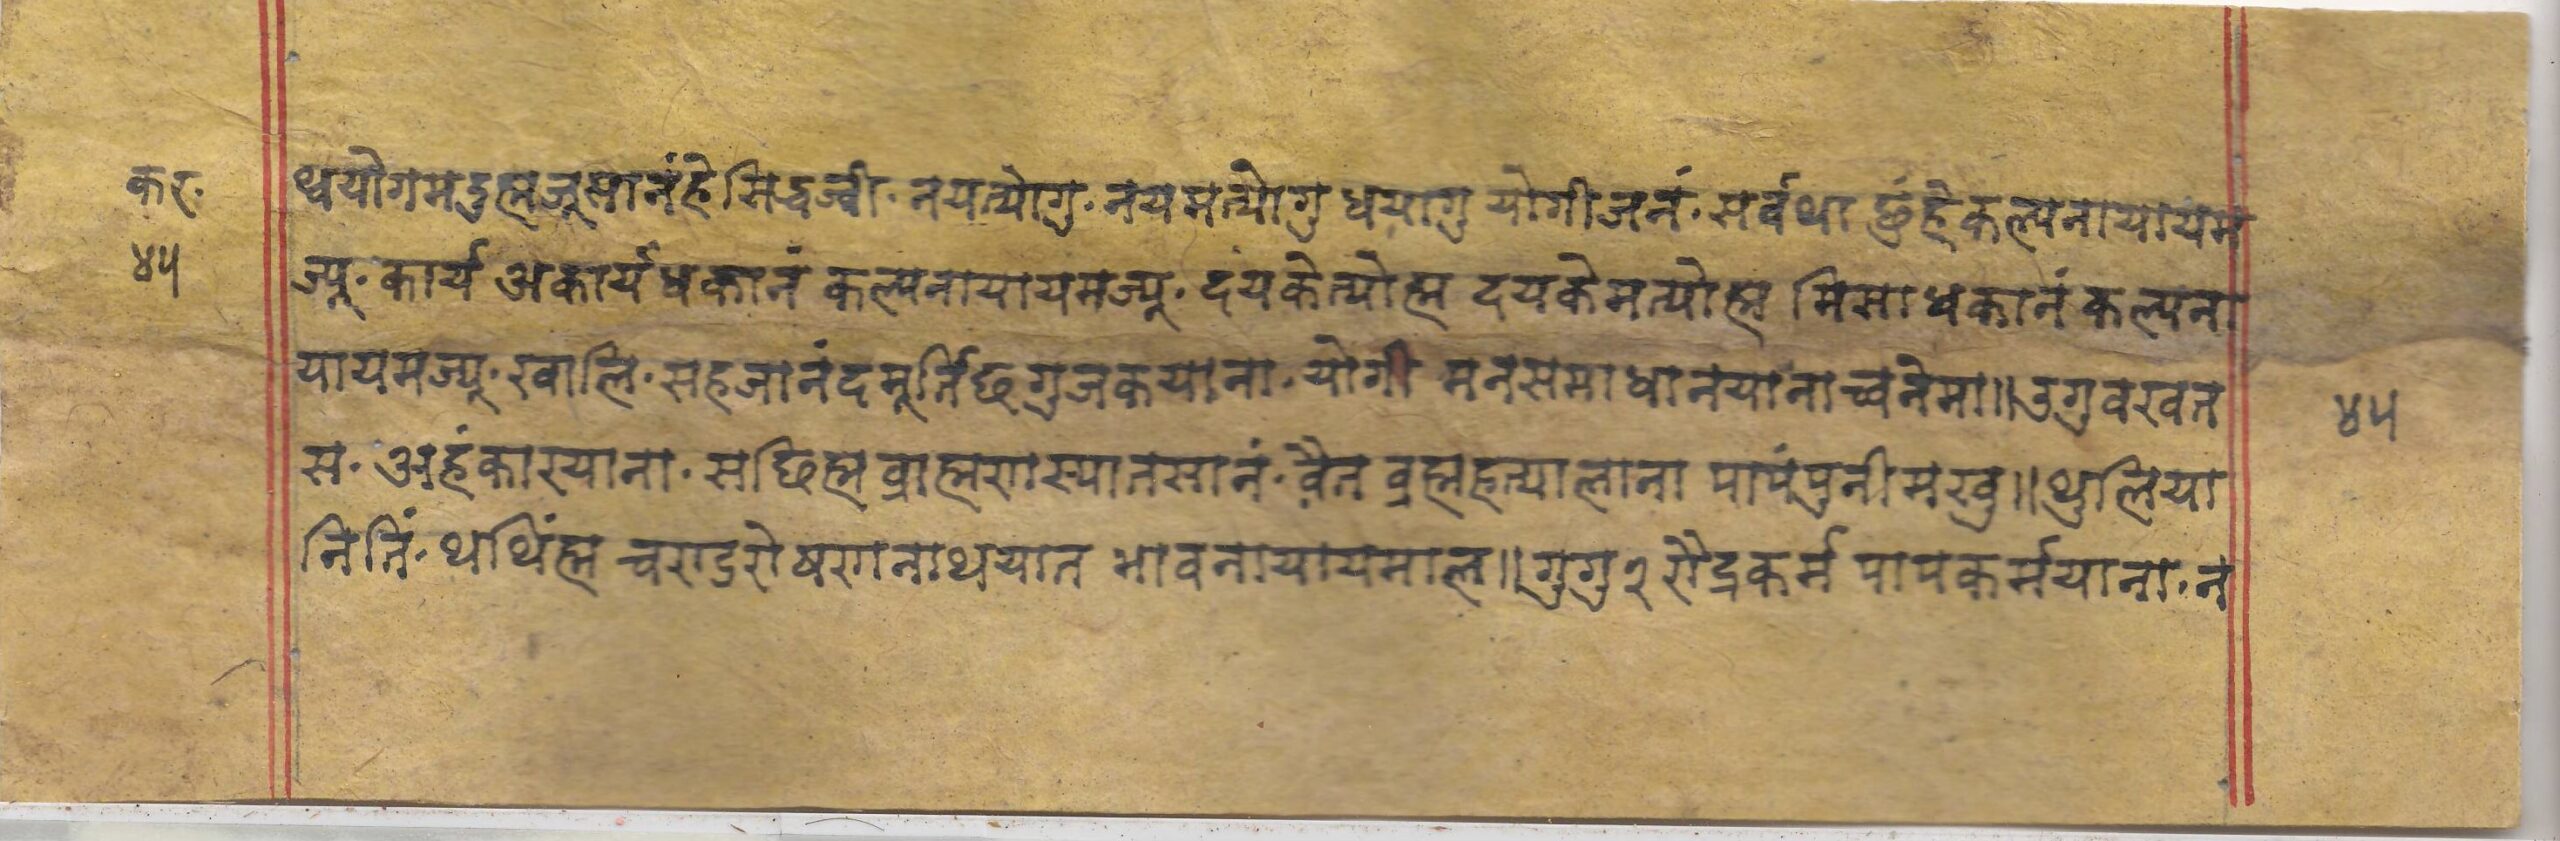 कर.
४५
थ्वयोगमदुह्मजूसानंहे सिद्धज्वी. नयत्योगु. नयमत्योगु धयागु योगीजनं. सर्वथा छुंहे कल्पनायायम
ज्यू. कार्य अकार्य धकानं कल्पनायायमज्यू. दयकेत्योह्म दयकेमत्योह्म मिसा धकानं कल्पना
यायमज्यू. खालि. सहजानंदमूर्त्ति छगुजकयाना. योगी मनसमाधानयानाच्वनेमा॥ उगुवखत
स. अहंकारयाना. सछिह्म ब्राह्मणस्यातसानं. वैत ब्रह्महत्यालाना पापंपुनीमखु॥ थुलिया
निर्तिं. थथिंह्म चण्डरोषणनाथयात भावनायायमाल॥ गुगु२ रौद्रकर्म पापकर्मयाना. न
४५